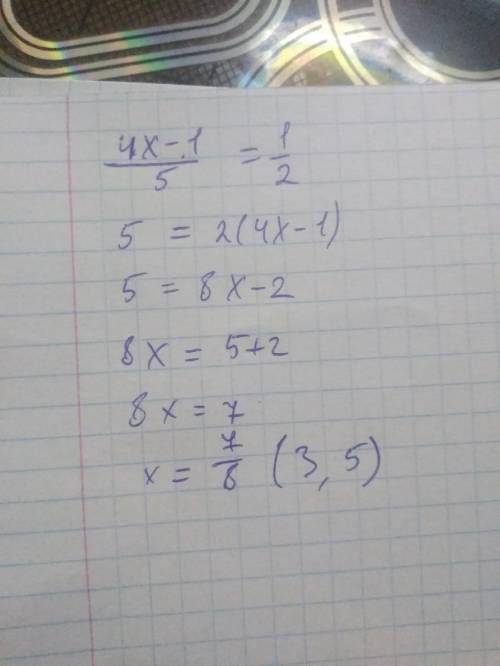 4x-1/5 = 1/2
5 = 2(4x-1)
5 = 8x-2
8x = 5+2
8x = 7
x = 7/8 (3,5)